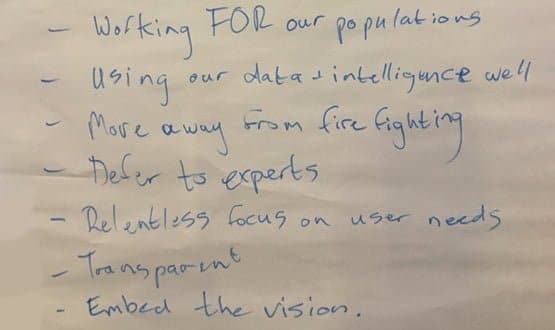 - Working FOR our populations
- Using our data + intelligence well
- Move away from fire fighting
- Defer to experts
- Relentless focus on user needs
- Transparent
- Embed the vision.